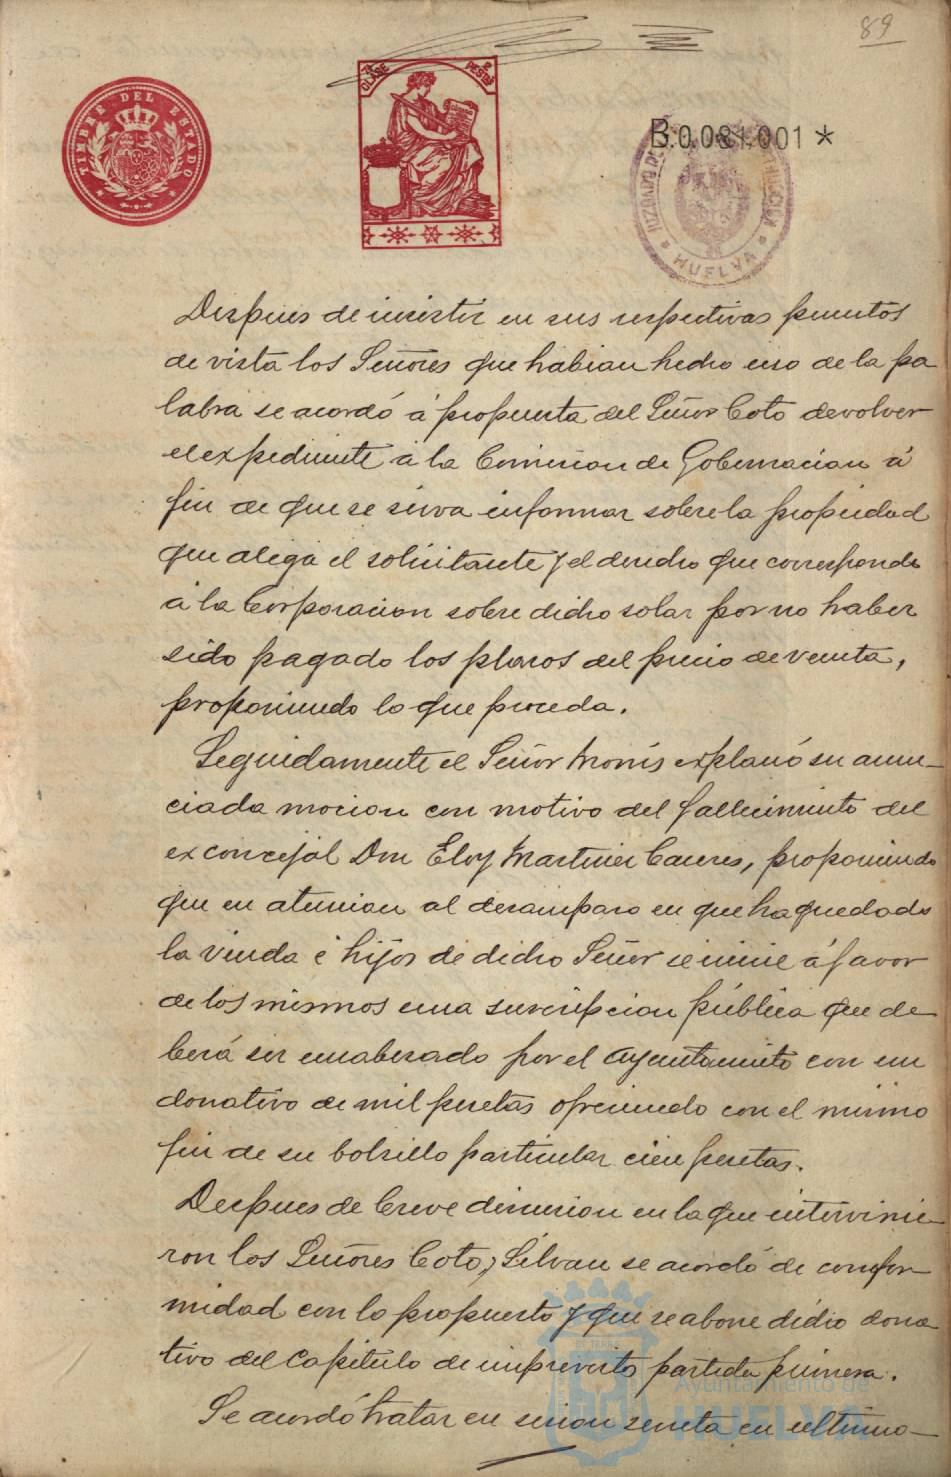 89
TIMBRE DEL ESTADO
7ª CLASE
2 PESETAS
B.0.081.001 *
JUZGADO DE
HUELVA
Despues de insistir en sus respectivos puntos
de vista los Señores que habian hecho uso de la pa
labra se acordó á propuesta del Señor Coto devolver
el expediente á la Comision de Gobernacion á
fin de que se sirva informar sobre la propiedad
que alega el solicitante y el derecho que corresponde
á la Corporacion sobre dicho solar por no haber
sido pagado los plazos del precio de venta,
proponiendo lo que proceda.
Seguidamente el Señor Monís explanó su anun-
ciada mocion con motivo del fallecimiento del
exconcejal Don Eloy Martinez Caceres, proponiendo
que en atencion al desamparo en que ha quedado
la viuda é hijos de dicho Señor se inicie á favor
de los mismos una suscripcion pública que de-
berá ser encabezado por el Ayuntamiento con un
donativo de mil pesetas ofreciendo con el mismo
fin de su bolsillo particular cien pesetas.
Despues de breve discusion en la que intervinie-
ron los Señores Coto, y Silvan se acordó de confor-
midad con lo propuesto y que se abone dicho dona-
tivo del Capítulo de imprevistos partida primera.
Se acordó tratar en sesion secreta en último-
Ayuntamiento de
HUELVA